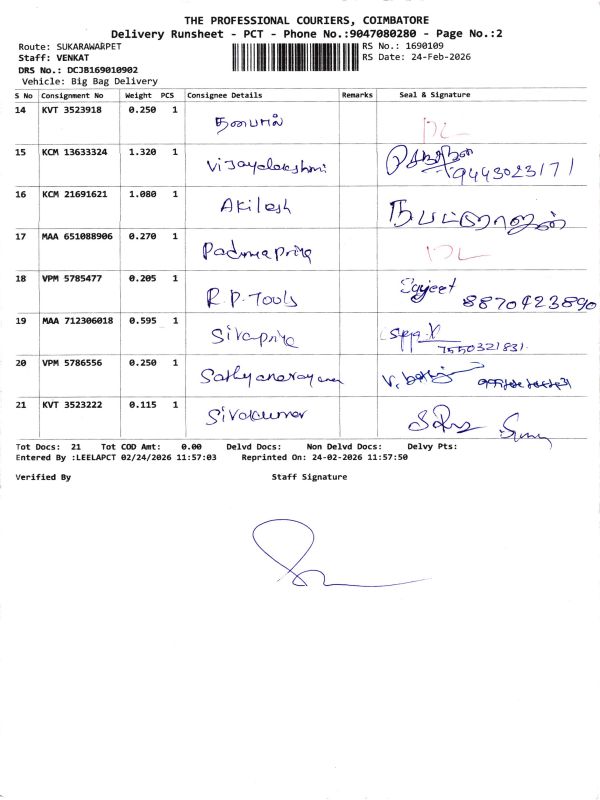 THE PROFESSIONAL COURIERS, COIMBATORE
Delivery Runsheet - PCT - Phone No.:9047080280 - Page No.:2
Route: SUKARAWARPET
RS No.: 1690109
Staff: VENKAT
RS Date: 24-Feb-2026
DRS No.: DCJB169010902
Vehicle: Big Bag Delivery
S No Consignment No Weight PCS Consignee Details Remarks Seal & Signature
14 KVT 3523918 0.250 1
15 KCM 13633324 1.320 1 Vijayalakshmi 9443023171
16 KCM 21691621 1.080 1 Akilesh
17 MAA 651088906 0.270 1 Padmapriya
18 VPM 5785477 0.205 1 R.P. Tools 8870423890
19 MAA 712306018 0.595 1 Sivapriya 7550321831
20 VPM 5786556 0.250 1 Sathyanarayanan
21 KVT 3523222 0.115 1 Sivakumar
Tot Docs: 21 Tot COD Amt: 0.00 Delvd Docs: Non Delvd Docs: Delvy Pts:
Entered By :LEELAPCT 02/24/2026 11:57:03 Reprinted On: 24-02-2026 11:57:50
Verified By Staff Signature